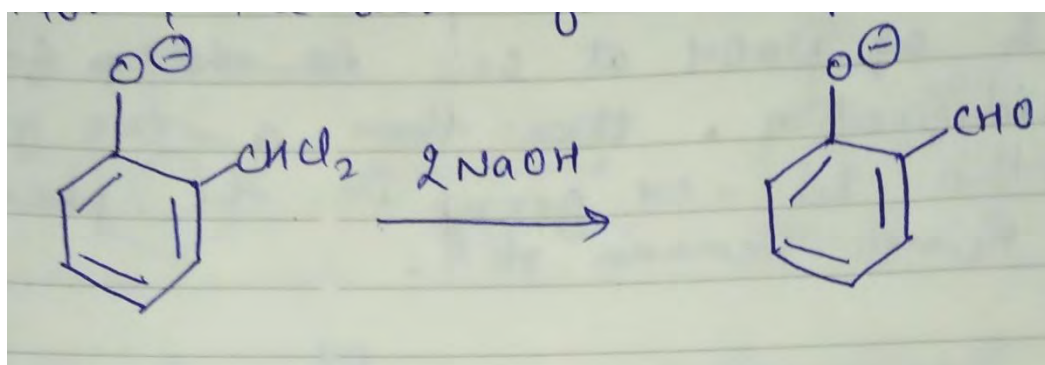 O⊖
CHCl₂
2 NaOH
O⊖
CHO